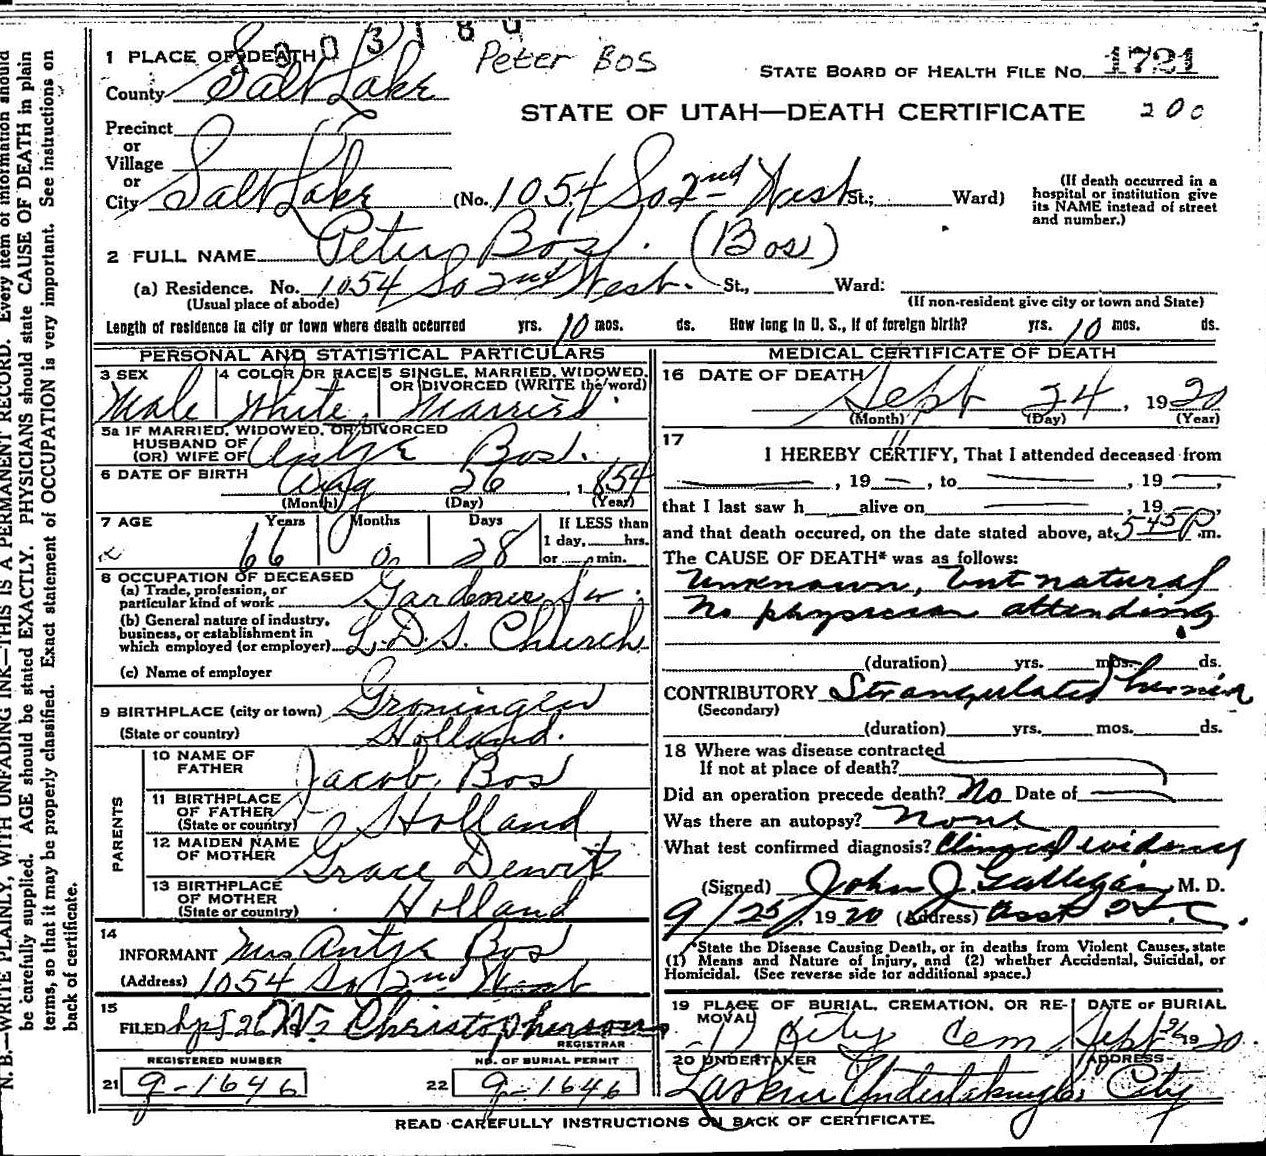 1 PLACE OF DEATH
Peter Bos
STATE BOARD OF HEALTH FILE No. 1721
County Salt Lake
STATE OF UTAH—DEATH CERTIFICATE 200
Precinct
or
Village
or
City Salt Lake (No. 1054 So 2nd West St.; Ward)
(If death occurred in a hospital or institution give its NAME instead of street and number.)
2 FULL NAME Peter Bos. (Bos)
(a) Residence. No. 1054 So 2nd West. St., Ward:
(Usual place of abode) (If non-resident give city or town and State)
Length of residence in city or town where death occurred yrs. 10 mos. ds. How long in U. S., if of foreign birth? yrs. 10 mos. ds.
PERSONAL AND STATISTICAL PARTICULARS
3 SEX 4 COLOR OR RACE 5 SINGLE, MARRIED, WIDOWED, OR DIVORCED (WRITE the word)
Male White. Married.
5a IF MARRIED, WIDOWED, OR DIVORCED
HUSBAND OF
(OR) WIFE OF Antje Bos.
6 DATE OF BIRTH Aug 26, 1854
(Month) (Day) (Year)
7 AGE Years Months Days If LESS than
1 day, hrs.
66 0 28 or min.
8 OCCUPATION OF DECEASED
(a) Trade, profession, or
particular kind of work Gardener
(b) General nature of industry,
business, or establishment in
which employed (or employer) L.D.S. Church
(c) Name of employer
9 BIRTHPLACE (city or town) Groningen
(State or country) Holland.
PARENTS
10 NAME OF
FATHER Jacob Bos
11 BIRTHPLACE
OF FATHER
(State or country) Holland
12 MAIDEN NAME
OF MOTHER Grace Dewit
13 BIRTHPLACE
OF MOTHER
(State or country) Holland
14
INFORMANT Mrs Antje Bos
(Address) 1054 So 2nd West
15
FILED Sept 26 Christopherson
REGISTRAR
REGISTERED NUMBER NO. OF BURIAL PERMIT
21 9-1646 22 9-1646
MEDICAL CERTIFICATE OF DEATH
16 DATE OF DEATH
Sept 24, 1920
(Month) (Day) (Year)
17
I HEREBY CERTIFY, That I attended deceased from
, 19 , to , 19 ,
that I last saw h alive on , 19 ,
and that death occured, on the date stated above, at 5 45 P m.
The CAUSE OF DEATH* was as follows:
Unknown, but natural
No physician attending.
(duration) yrs. mos. ds.
CONTRIBUTORY Strangulated hernia
(Secondary)
(duration) yrs. mos. ds.
18 Where was disease contracted
If not at place of death?
Did an operation precede death? No Date of
Was there an autopsy? None
What test confirmed diagnosis? Clinical evidence
(Signed) John J. Galligan, M. D.
9/25, 1920 (Address) Asst
*State the Disease Causing Death, or in deaths from Violent Causes, state
(1) Means and Nature of Injury, and (2) whether Accidental, Suicidal, or
Homicidal. (See reverse side for additional space.)
19 PLACE OF BURIAL, CREMATION, OR RE-
MOVAL DATE OF BURIAL
City Cem Sept 26 1920.
20 UNDERTAKER ADDRESS
Larkin City
READ CAREFULLY INSTRUCTIONS ON BACK OF CERTIFICATE.
N. B.—WRITE PLAINLY, WITH UNFADING INK—THIS IS A PERMANENT RECORD. Every item of information should
be carefully supplied. AGE should be stated EXACTLY. PHYSICIANS should state CAUSE OF DEATH in plain
terms, so that it may be properly classified. Exact statement of OCCUPATION is very important. See instructions on
back of certificate.